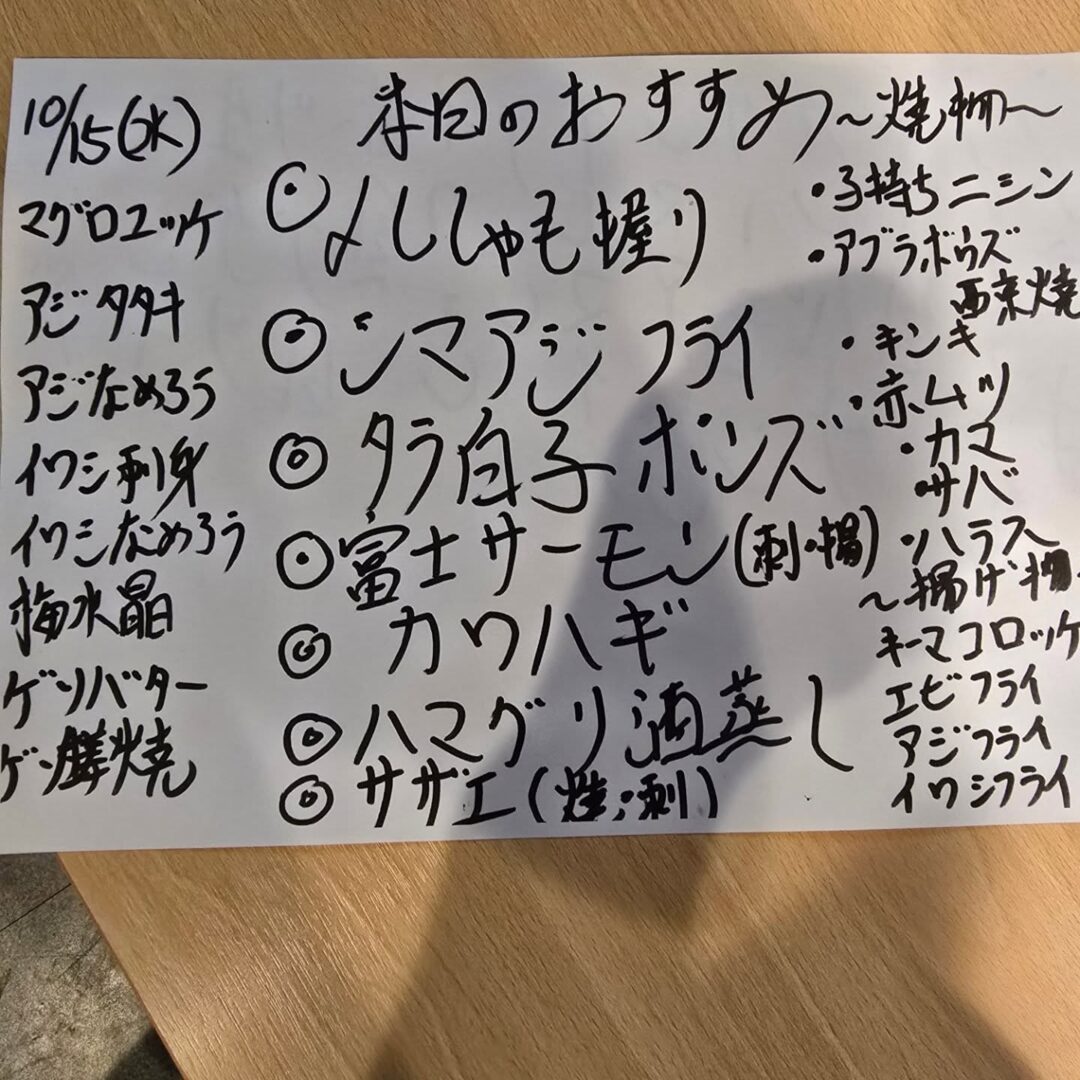 10/15(水)
マグロユッケ
アジタタキ
アジなめろう
イワシ刺身
イワシなめろう
梅水晶
ゲソバター
ゲソ
本日のおすすめ
◎〆ししゃも握り
◎シマアジフライ
◎タラ白子ポンズ
◎富士サーモン(刺・揚)
◎カワハギ
◎ハマグリ酒蒸し
◎サザエ(焼・刺)
～焼物～
・子持ちニシン
・アブラボウズ
西京焼
・キンキ
・赤ムツ
・カマ
・サバ
・ハラス
～揚げ物
キーマコロッケ
エビフライ
アジフライ
イワシフライ